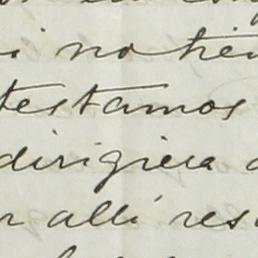 i no tien
testamos
dirigiera a
r alli res